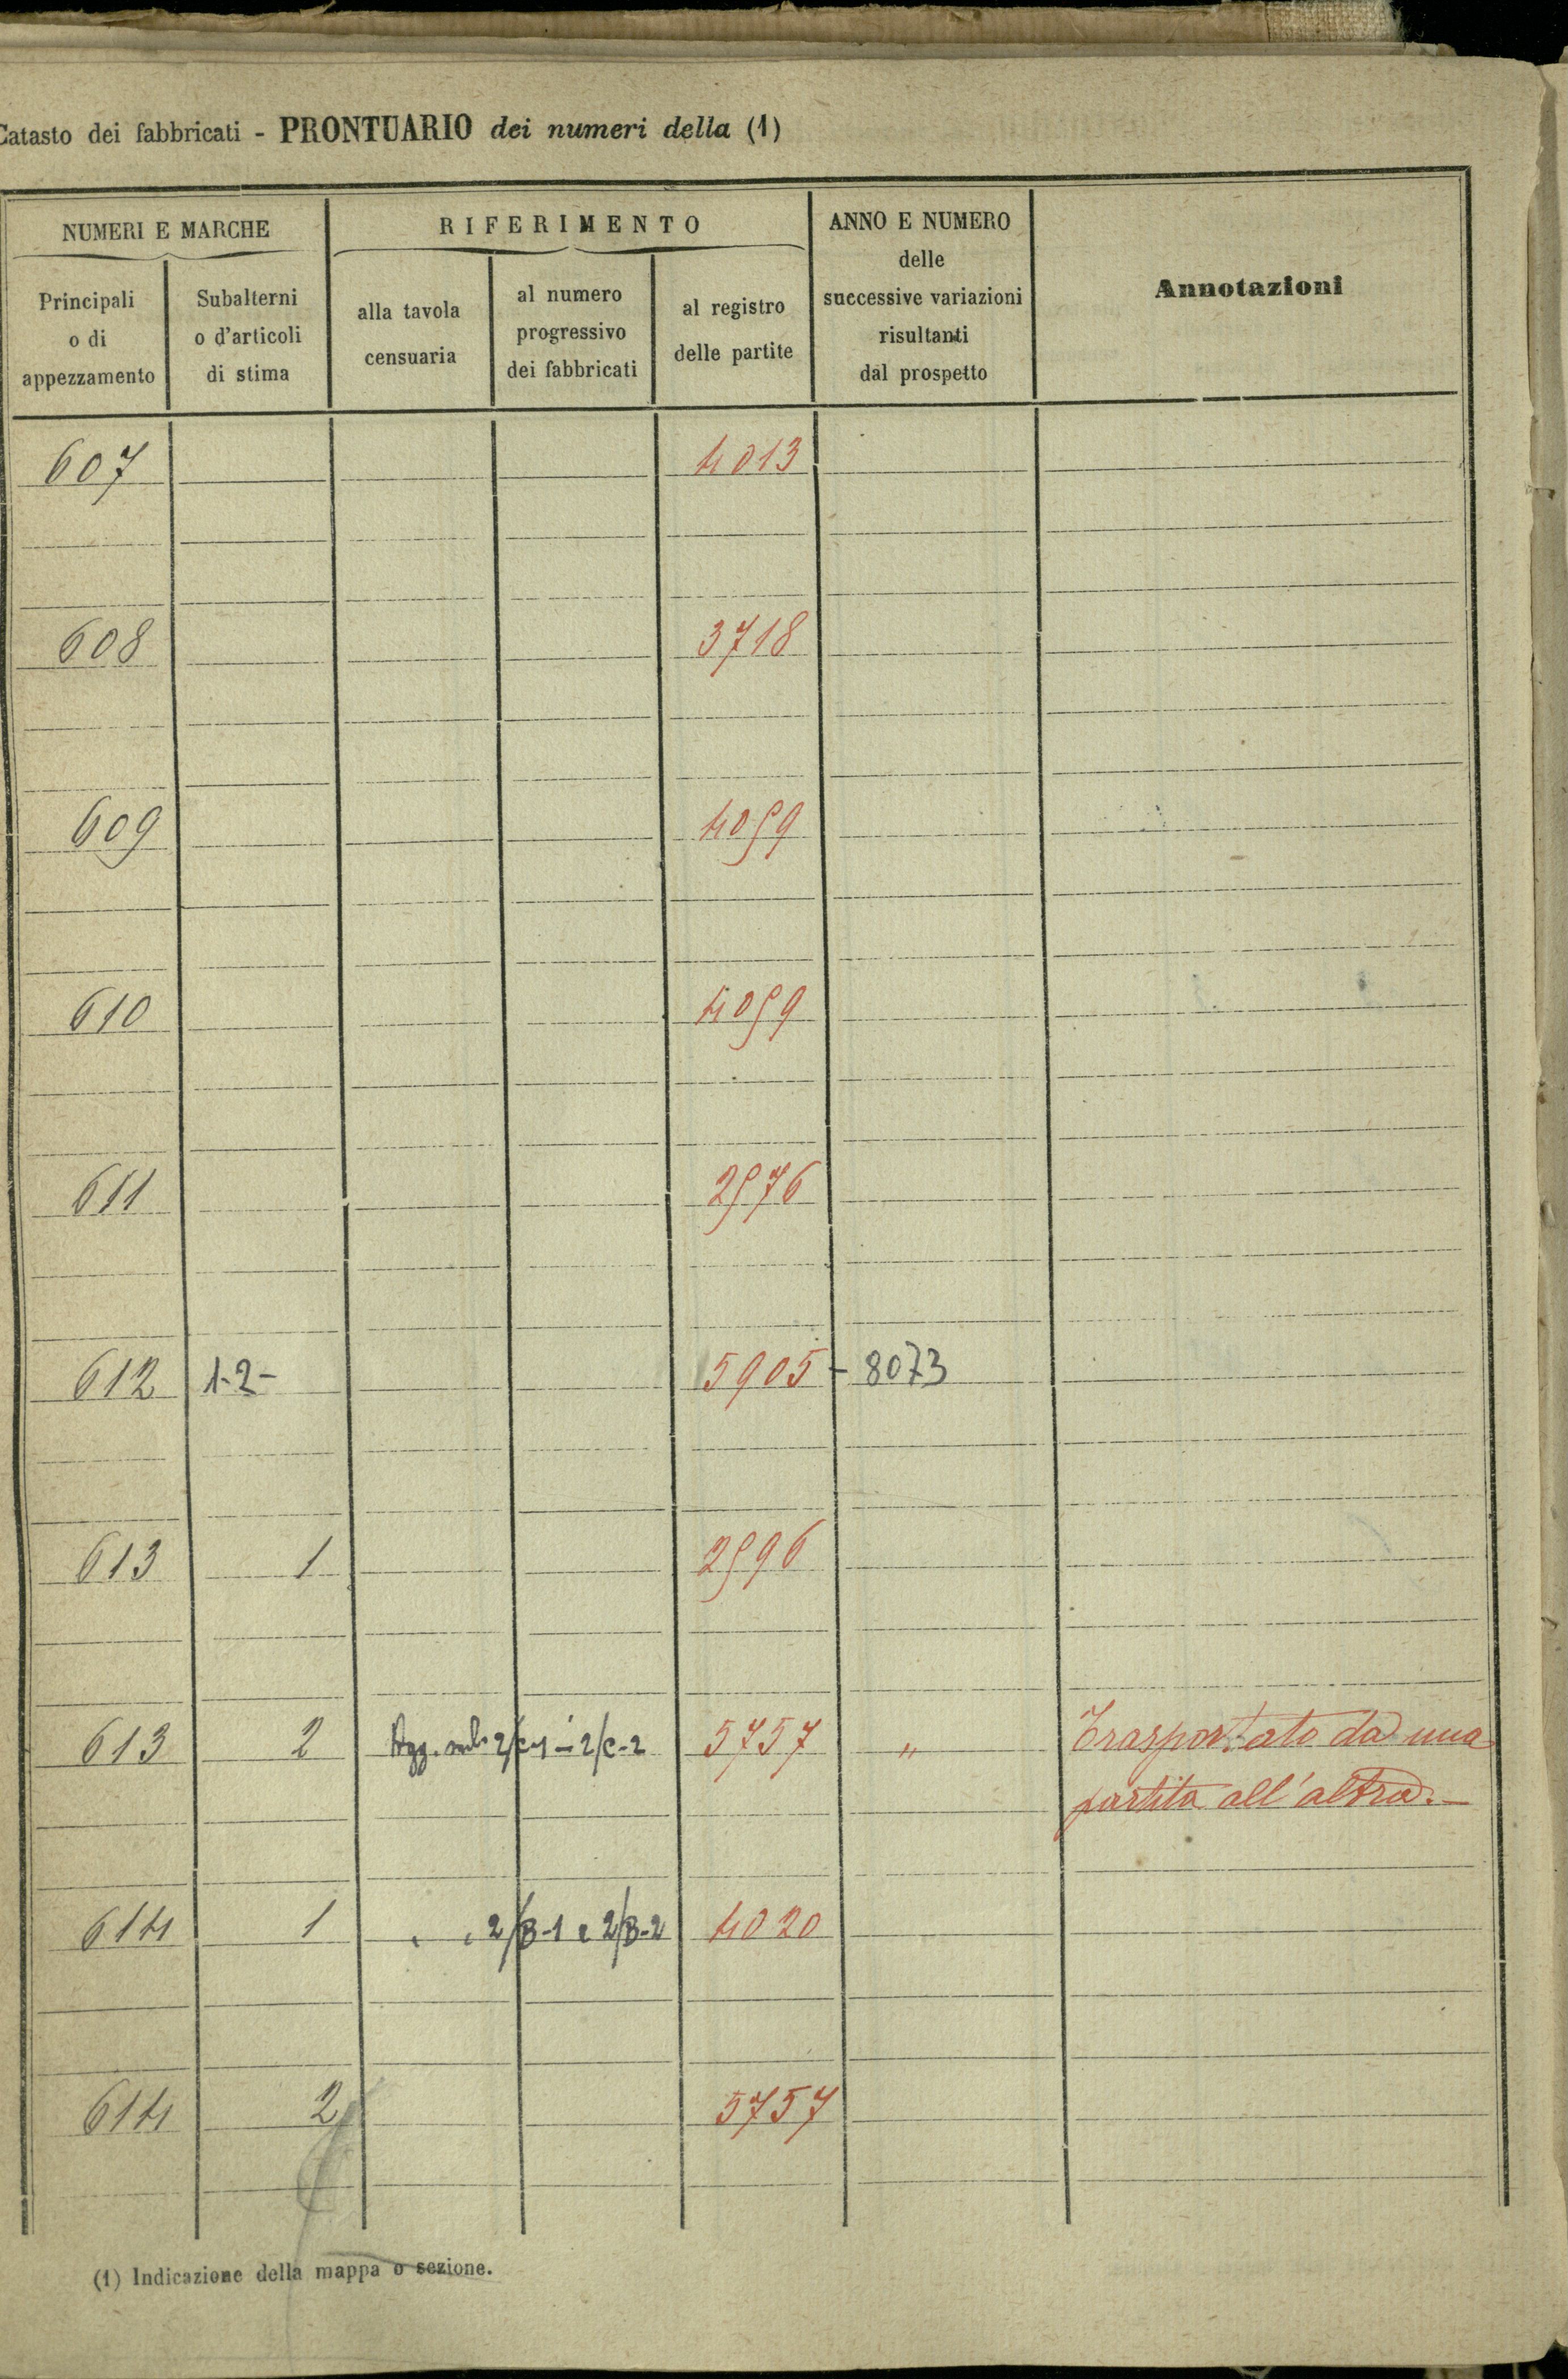 Catasto dei fabbricati - PRONTUARIO dei numeri della (1)
NUMERI E MARCHE
RIFERIMENTO
ANNO E NUMERO
delle
successive variazioni
risultanti
dal prospetto
Annotazioni
Principali
o di
appezzamento
Subalterni
o d'articoli
di stima
alla tavola
censuaria
al numero
progressivo
dei fabbricati
al registro
delle partite
607 4013
608 3718
609 4059
610 4059
611 2576
612 1-2- 5905 - 8073
613 1 2596
613 2 Agg. sub. 2/C-1 - 2/C-2 5757 " Trasportato da una
partita all'altra.-
614 1 " " 2/B-1 e 2/B-2 4020
614 2 5757
(1) Indicazione della mappa o sezione.